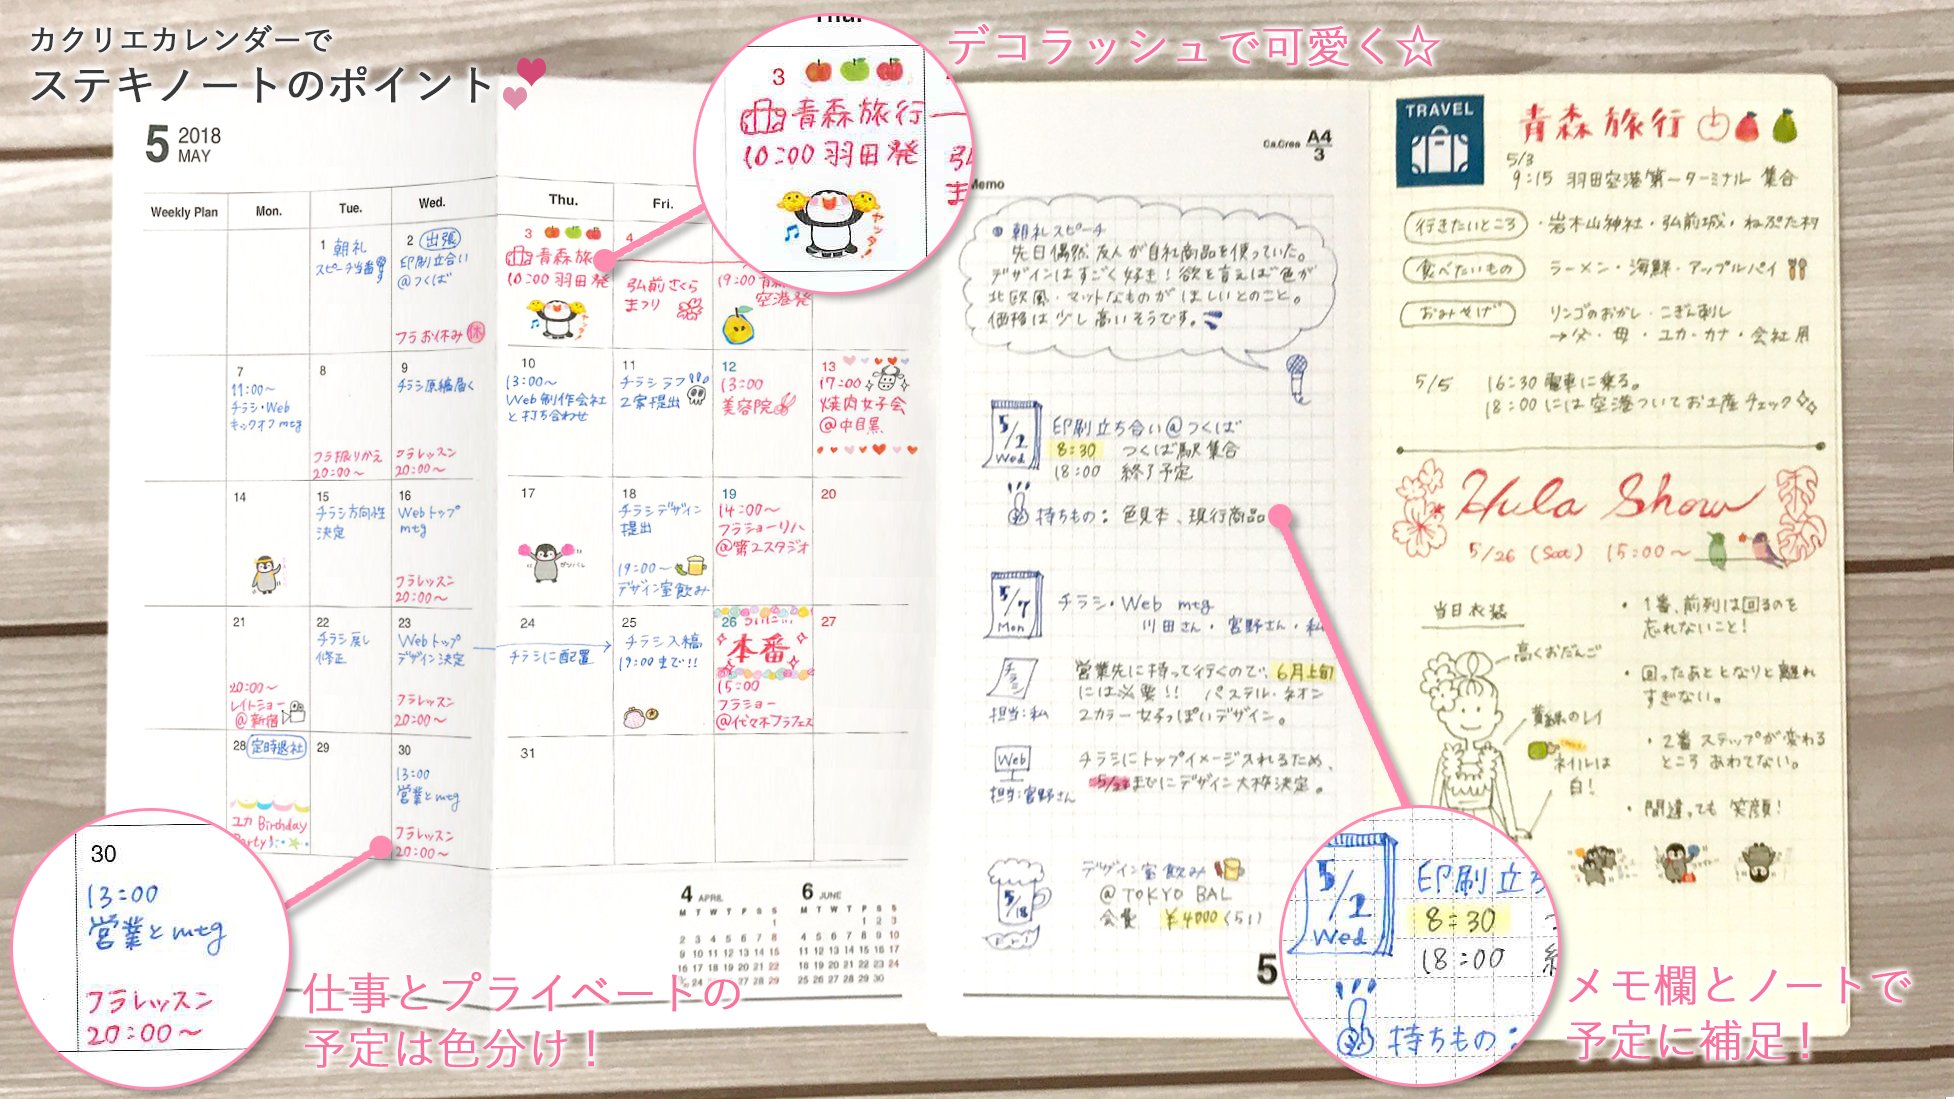 カクリエカレンダーで
ステキノートのポイント
デコラッシュで可愛く☆
5 2018
MAY
Weekly Plan Mon. Tue. Wed. Thu. Fri.
1 朝礼
スピーチ当番
2 出張
印刷立合い
@つくば
フラお休み 休
3
青森旅
10:00 羽田発
4
弘前さくら
まつり
19:00
空港発
7
11:00~
チラシ・Web
キックオフmtg
8
フラ振りかえ
20:00~
9
チラシ原稿届く
フラレッスン
20:00~
10
13:00~
Web制作会社
と打ち合わせ
11
チラシラフ
2案提出
12
13:00
美容院
13
17:00
焼肉女子会
@中目黒
14
15
チラシ方向性
決定
16
Webトップ
mtg
フラレッスン
20:00~
17
ガンバレ
18
チラシデザイン
提出
19:00~
デザイン室飲み
19
14:00~
フラショーリハ
@第2スタジオ
20
21
20:00~
レイトショー
@新宿
22
チラシ戻し
修正
23
Webトップ
デザイン決定
フラレッスン
20:00~
24
チラシに配置
25
チラシ入稿
19:00まで!!
26
本番
15:00
フラショー
@代々木フラフェス
27
28 定時退社
ユカ Birthday
Party
29
30
13:00
営業とmtg
フラレッスン
20:00~
31
4 APRIL
M T W T F S S
1
2 3 4 5 6 7 8
9 10 11 12 13 14 15
16 17 18 19 20 21 22
24 25 26 27 28 29
6 JUNE
M T W T F S S
1 2 3
4 5 6 7 8 9 10
11 12 13 14 15 16 17
18 19 20 21 22 23 24
25 26 27 28 29 30
Thu.
3
青森旅行
10:00 羽田発
ヤッター!
Ca.Crea A4
3
Memo
朝礼スピーチ
先日偶然、友人が自社商品を使っていた。
デザインはすごく好き!欲を言えば色が
北欧風・マットなものがほしいとのこと。
価格は少し高いそうです。
5/2
Wed
印刷立ち合い@つくば
8:30 つくば駅集合
18:00 終了予定
持ちもの: 色見本、現行商品
5/7
Mon
チラシ・Web mtg
川田さん・宮野さん・私
チラシ
担当:私
営業先に持って行くので、6月上旬
には必要!! パステル・ネオン
2カラー女子っぽいデザイン。
Web
担当:宮野さん
チラシにトップイメージ入れるため、
までにデザイン大枠決定。
5/18
Fri
デザイン室飲み
@ TOKYO BAL
会費 ¥4000
5
TRAVEL
青森旅行
5/3
9:15 羽田空港第一ターミナル 集合
行きたいところ ・岩木山神社・弘前城・ねぷた村
食べたいもの ラーメン・海鮮・アップルパイ
おみやげ リンゴのおかし・こぎん刺し
→父・母・ユカ・カナ・会社用
5/5 16:30 電車に乗る。
18:00には空港ついてお土産チェック
Hula Show
5/26 (Sat) 15:00~
当日衣装
高くおだんご
黄緑のレイ
ネイルは
白!
・1番、前列は回るのを
忘れないこと!
・回ったあととなりと離れ
すぎない。
・2番 ステップが変わる
ところ あわてない。
・間違っても 笑顔!
30
13:00
営業とmtg
フラレッスン
20:00~
仕事とプライベートの
予定は色分け!
5/2
Wed
印刷立ち
8:30
18:00
持ちもの:
メモ欄とノートで
予定に補足!